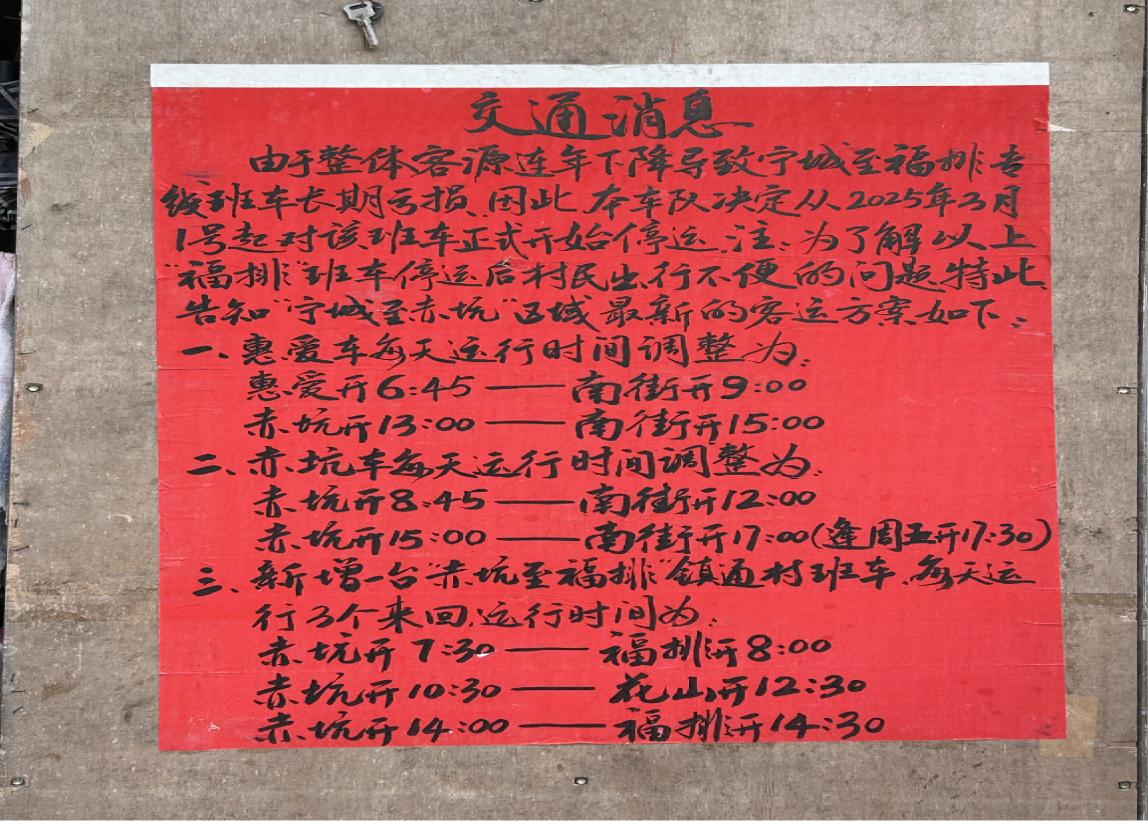 交通消息
由于整体客源连年下降导致宁城至福排专
线班车长期亏损、因此、本车队决定从2025年3月
1号起对该班车正式开始停运、注:为了解以上
"福排"班车停运后村民出行不便的问题、特此
告知"宁城至赤坑"区域最新的客运方案如下:
一、惠爱车每天运行时间调整为:
惠爱开6:45——南街开9:00
赤坑开13:00——南街开15:00
二、赤坑车每天运行时间调整为:
赤坑开8:45——南街开12:00
赤坑开15:00——南街开17:00(逢周五开17:30)
三、新增一台"赤坑至福排"镇通村班车、每天运
行3个来回、运行时间为:
赤坑开7:30——福排开8:00
赤坑开10:30——花山开12:30
赤坑开14:00——福排开14:30